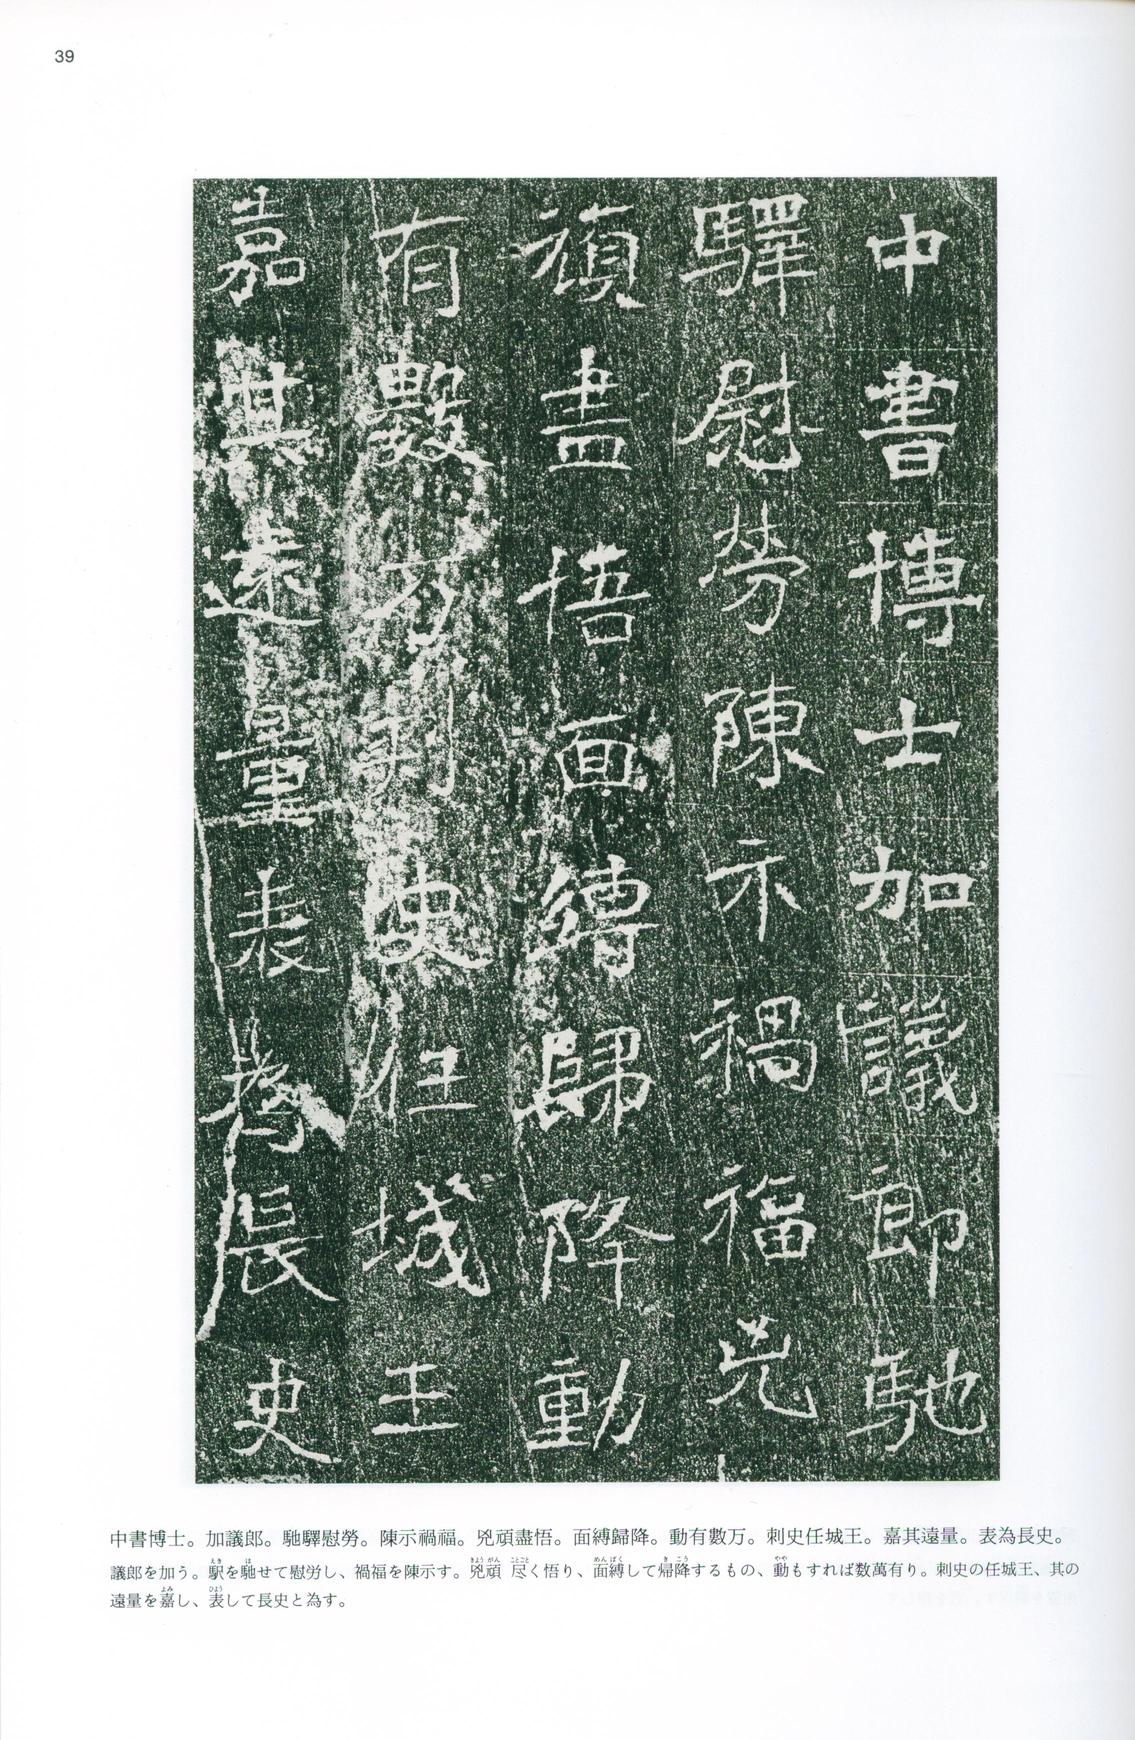 39
中書博士加議郎馳
驛慰勞陳示禍福兇
頑盡悟面縛歸降動
有數万刺史任城王
嘉其遠量表為長史
中書博士。加議郎。馳驛慰勞。陳示禍福。兇頑盡悟。面縛歸降。動有數万。刺史任城王。嘉其遠量。表為長史。
議郎を加う。駅を馳せて慰労し、禍福を陳示す。兇頑 尽く悟り、面縛して帰降するもの、動もすれば数萬有り。刺史の任城王、其の
遠量を嘉し、表して長史と為す。